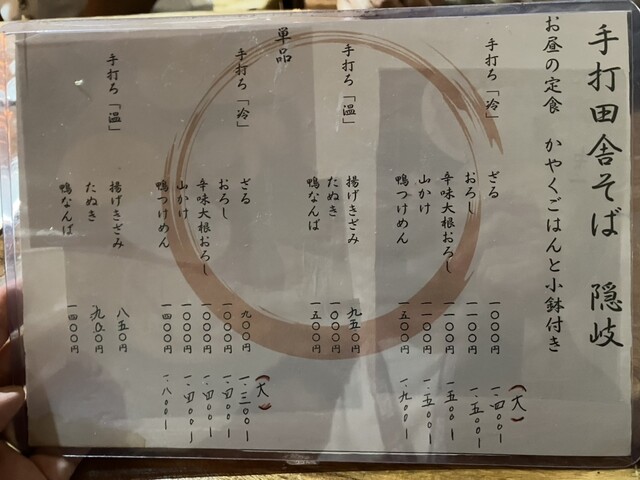 手打田舎そば 隠岐
お昼の定食 かやくごはんと小鉢付き
(大)
手打ち「冷」 ざる 一〇〇〇円 一.四〇〇ー
おろし 一一〇〇円 一.五〇〇ー
辛味大根おろし 一一〇〇円 一.五〇〇ー
山かけ 一一〇〇円 一.五〇〇ー
鴨つけめん 一五〇〇円 一.九〇〇ー
手打ち「温」 揚げきざみ 九五〇円
たぬき 一〇〇〇円
鴨なんば 一五〇〇円
単品
(大)
手打ち「冷」 ざる 九〇〇円 一.三〇〇ー
おろし 一〇〇〇円 一.四〇〇ー
辛味大根おろし 一〇〇〇円 一.四〇〇ー
山かけ 一〇〇〇円 一.四〇〇ー
鴨つけめん 一四〇〇円 一.八〇〇ー
手打ち「温」 揚げきざみ 八五〇円
たぬき 九〇〇円
鴨なんば 一四〇〇円